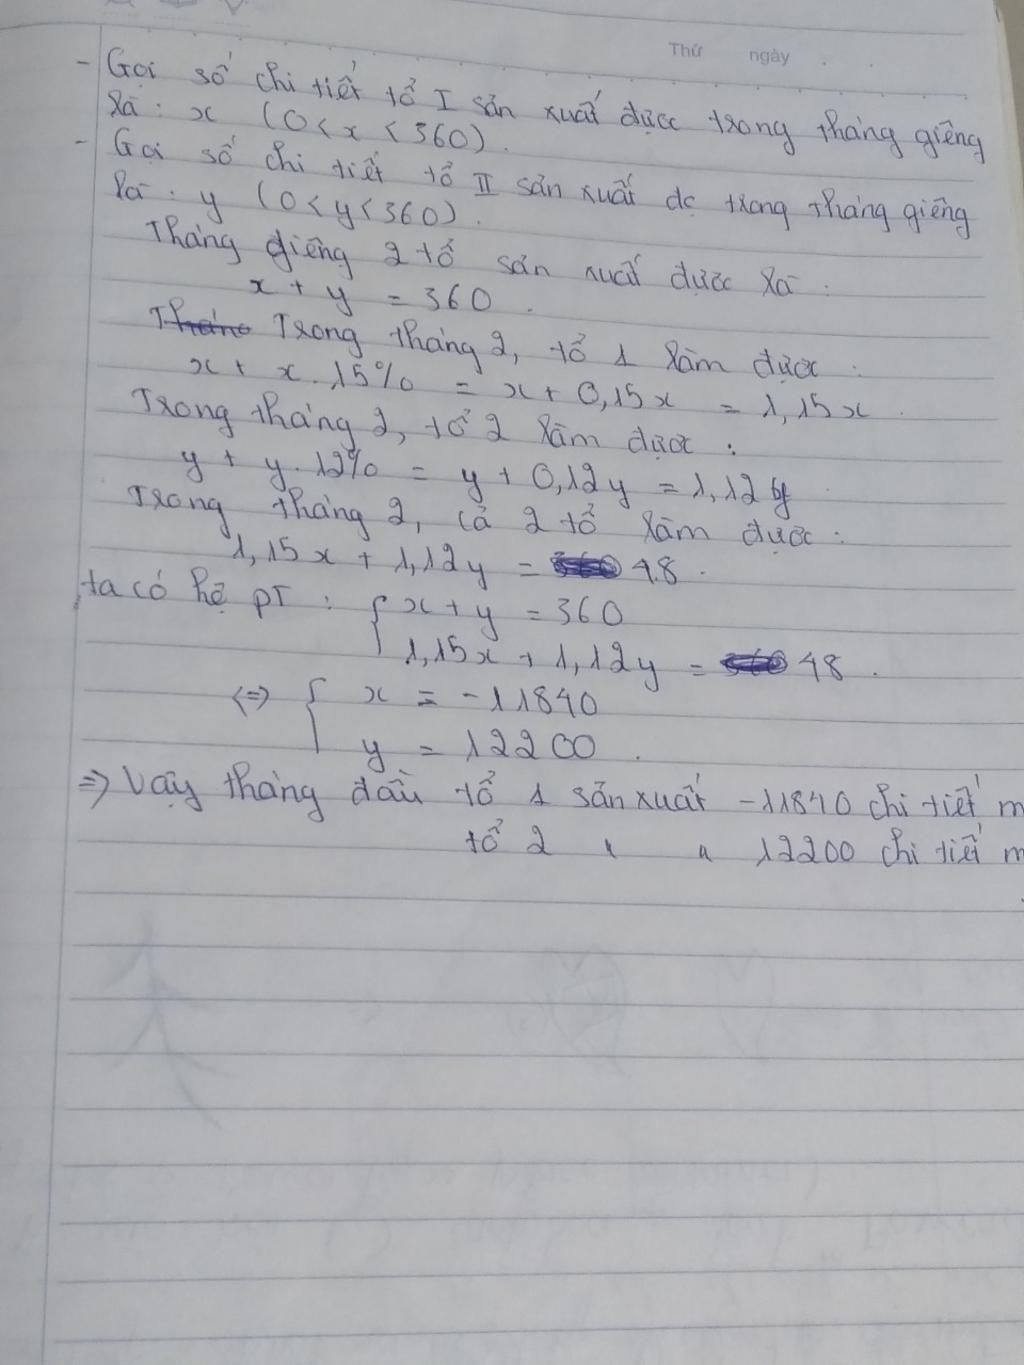 Thứ ngày . .
- Gọi số chi tiết tổ I sản xuất được trong tháng giêng
là : x (0 < x < 360).
- Gọi số chi tiết tổ II sản xuất dc trong tháng giêng
là : y (0 < y < 360).
Tháng giêng 2 tổ sản xuất được là :
x + y = 360 .
Trong tháng 2, tổ 1 làm được :
x + x . 15% = x + 0,15x = 1,15x .
Trong tháng 2, tổ 2 làm được :
y + y . 12% = y + 0,12y = 1,12y
Trong tháng 2, cả 2 tổ làm được :
1,15x + 1,12y = 48 .
ta có hệ PT : { x + y = 360
1,15x + 1,12y = 48 .
<=> { x = -11840
y = 12200 .
=> Vậy tháng đầu tổ 1 sản xuất -11840 chi tiết m
tổ 2 " " 12200 chi tiết m